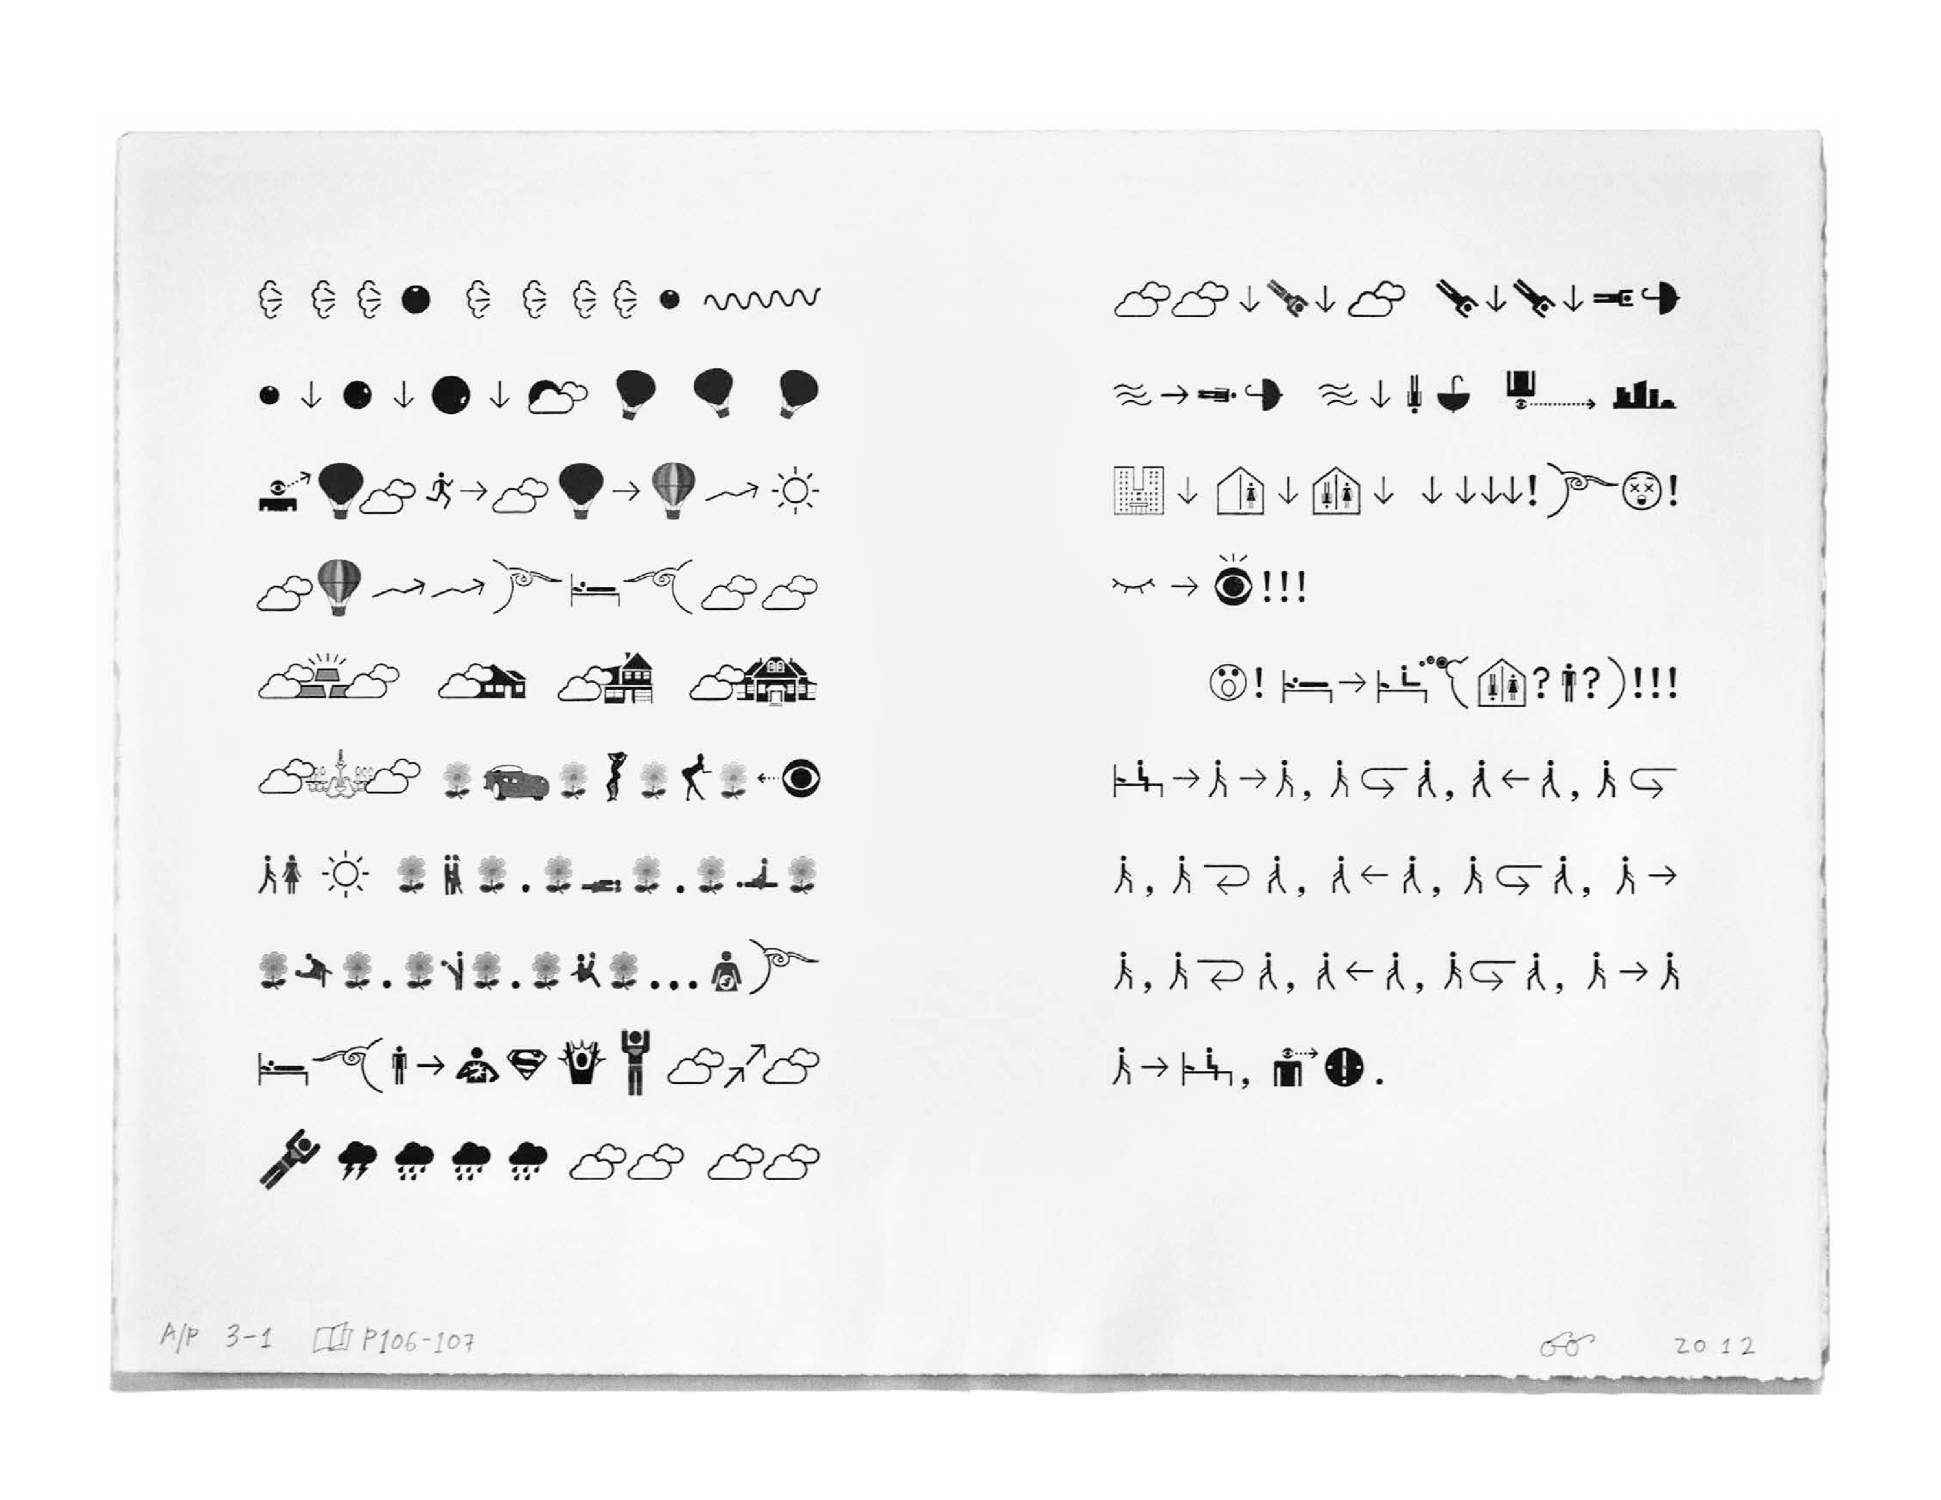 A/P 3-1 P106-107
2012